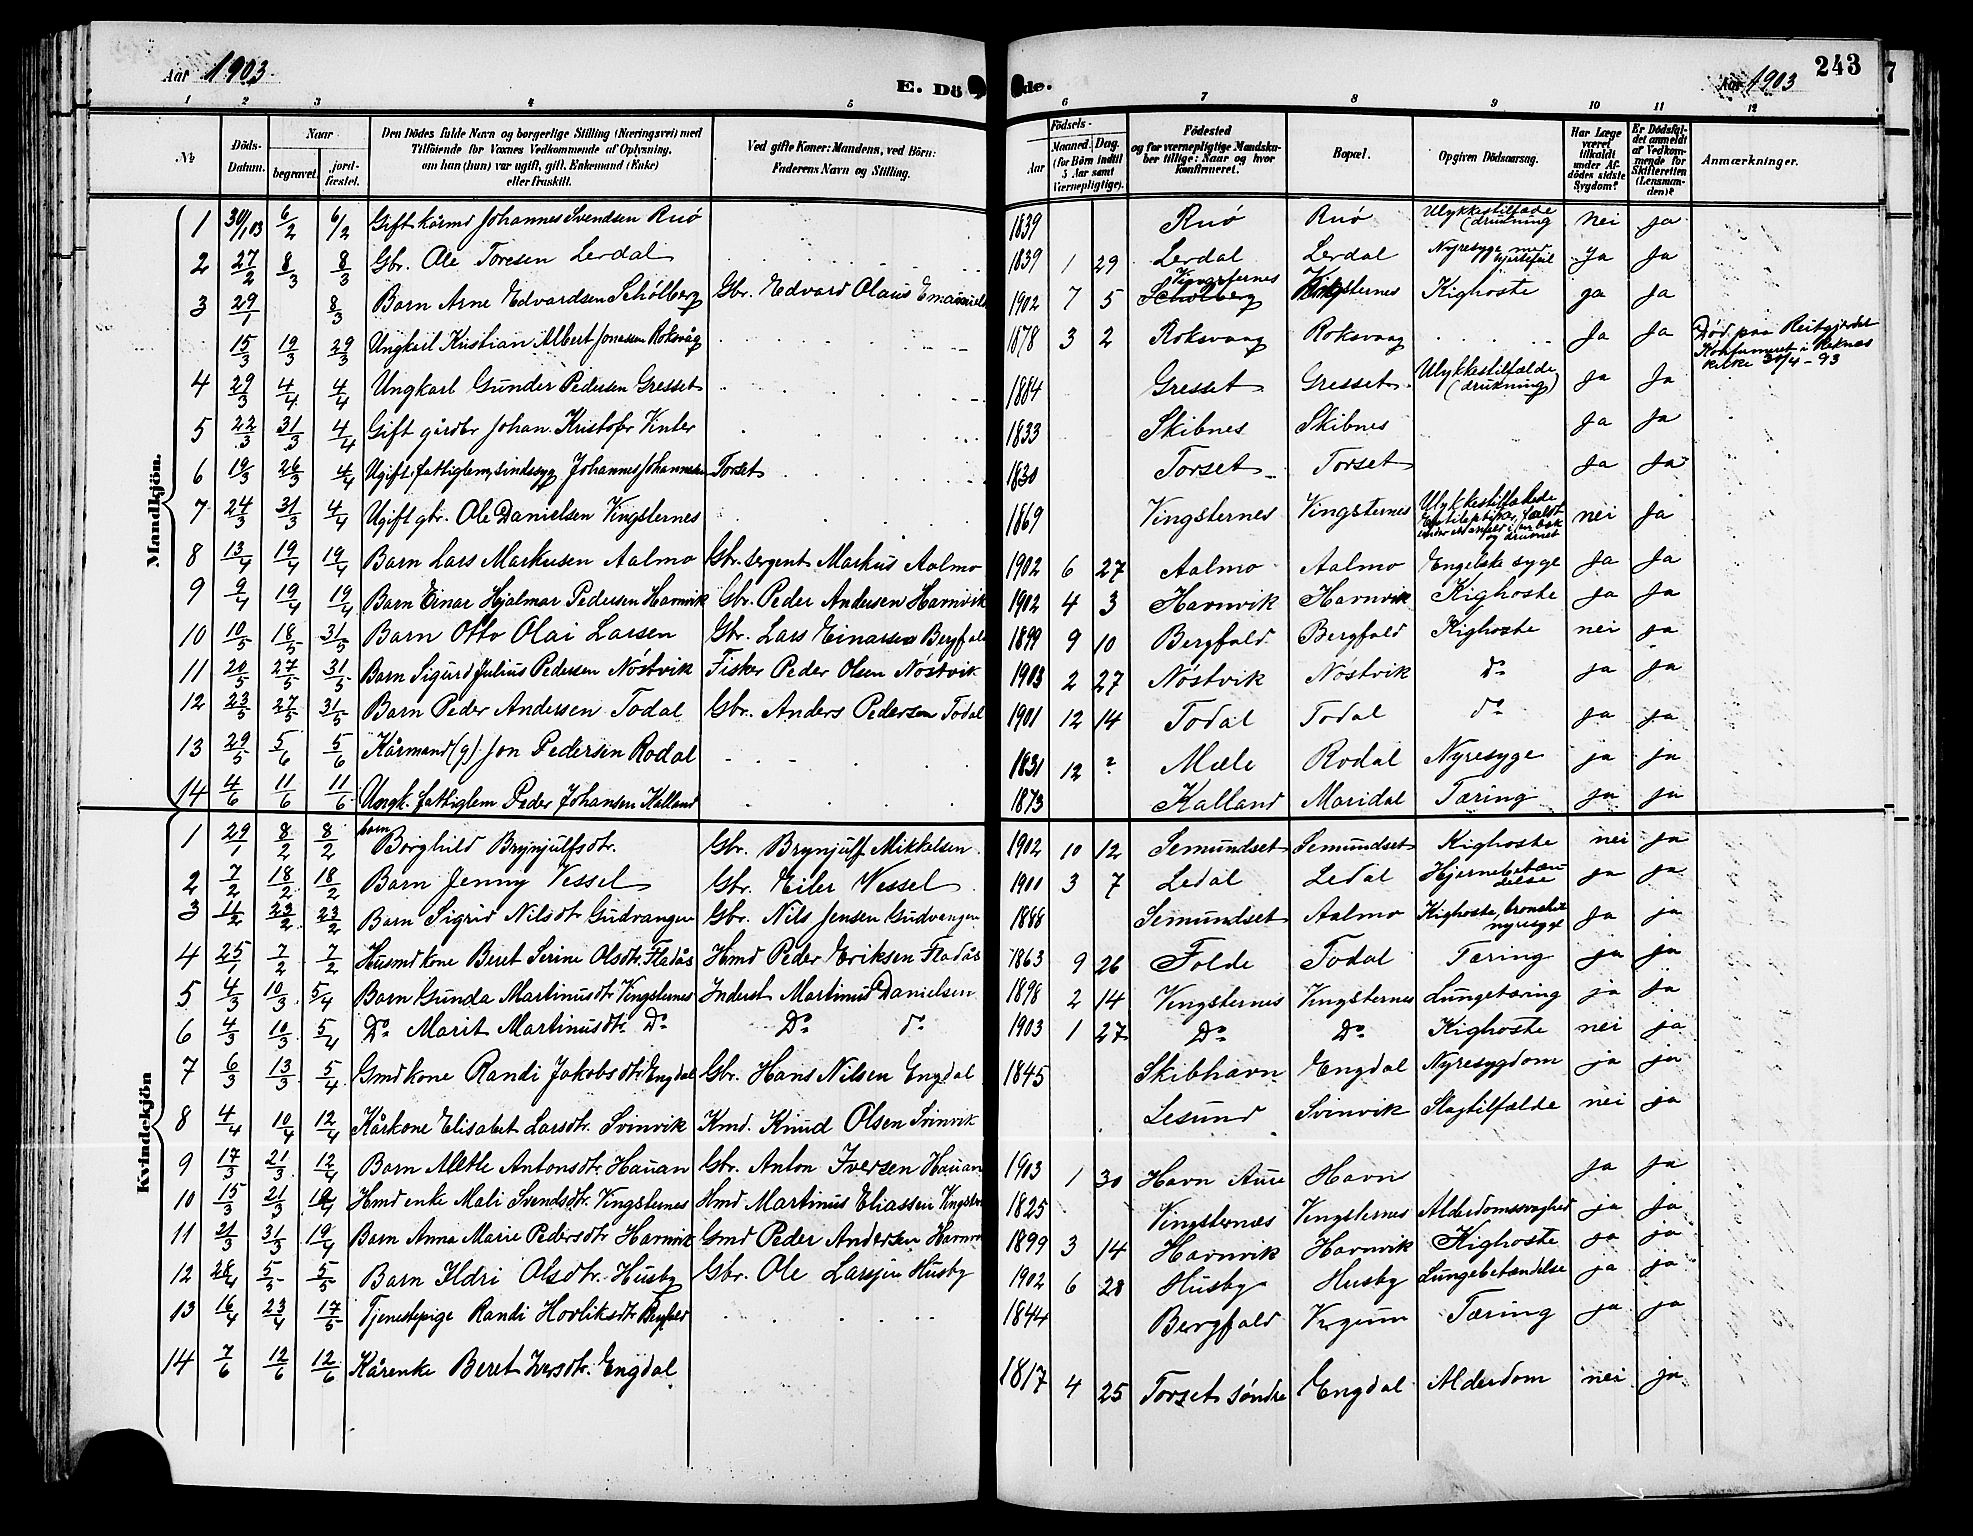 Aar 1903.
E. Dö de.
Aar 1903
243
7
1 2 3 4 5 6 7 8 9 10 11 12
№
Döds-Datum.
Naar begravet. jordfæstet.
Den Dödes fulde Navn og borgerlige Stilling (Næringsvei) med Tilföiende for Voxnes Vedkommende af Oplysning, om han (hun) var ugift, gift, Enkemand (Enke) eller fraskilt.
Ved gifte Koner: Mandens, ved Börn: Faderens Navn og Stilling.
Födsels-
Aar Maaned. Dag. (for Börn indtil 5 Aar samt Værnepligtige).
Födested og for værnepligtige Mandskaber tillige: Naar og hvor konfirmeret.
Bopæl.
Opgiven Dödsaarsag.
Har Læge været tilkaldt under Afdödes sidste Sygdom?
Er Dödsfaldet anmeldt af Vedkommende for Skifteretten (Lensmanden)?
Anmærkninger.
Mandkjön.
1 30/1 03 6/2 6/2 Gift kårmd Johannes Svendsen Ruö 1839 Ruö Ruö Ulykkestilfælde (drukning) nei ja
2 27/2 8/3 8/3 Gbr. Ole Toresen Lerdal 1839 1 29 Lerdal Lerdal Nyresyge med hjertefeil Ja Ja
3 29/1 8/3 Barn Arne Edvardsen Schölberg Gbr. Edvard Olaus Emanuels 1902 7 5 Schölberg Vingsternes Vingsternes Kighoste ja Ja
15/3 19/3 29/3 Ungkarl Kristian Albert Jonassen Roksvåg 1878 3 2 Roksvaag Roksvaag Ja Ja Død paa Reitgjerdet Konfirmeret i Reknes kirke 30/4-93
4 29/3 4/4 4/4 Ungkarl Gunder Pedersen Gresset 1884 Gresset Gresset Ulykkestilfælde (drukning) Ja Ja
5 22/3 31/3 4/4 Gift gårdbr Johan Kristofer Vinter 1833 Skibnes Skibnes Ja Ja
6 19/3 26/3 4/4 Ugift, fattiglem, sindssyg Johannes Johannesen Torset 1830 Torset Torset Ja Ja
7 24/3 31/3 4/4 Ugift gbr. Ole Danielsen Vingsternes 1869 Vingsternes Vingsternes Ulykkestilfælde og druknet nei Ja
8 13/4 19/4 19/4 Barn Lars Markusen Aalmo Gbr. sergent Markus Aalmo 1902 6 27 Aalmo Aalmo Engelske syge Ja Ja
9 9/4 19/4 19/4 Barn Einar Hjalmar Pedersen Havnvik Gbr. Peder Andersen Havnvik 1902 4 3 Havnvik Havnvik Kighoste Ja Ja
10 10/5 18/5 31/5 Barn Otto Olai Larsen Gbr. Lars Einarsen Bergfald 1899 9 10 Bergfald Bergfald Kighoste nei ja
11 20/5 27/5 31/5 Barn Sigurd Julius Pedersen Nöstvik Fisker Peder Olsen Nöstvik 1903 2 27 Nöstvik Nöstvik do ja ja
12 23/5 27/5 31/5 Barn Peder Andersen Todal Gbr. Anders Pedersen Todal 1901 12 14 Todal Todal do ja ja
13 29/5 5/6 5/6 Kårmand (g) Jon Pedersen Rodal 1831 12 ? Mæle Rodal Nyresyge ja ja
14 4/6 11/6 11/6 Ungk. fattiglem Peder Johansen Kalland 1873 Kalland Maridal Tæring ja ja
Kvindekjön
1 29/1 8/2 8/2 barn Borghild Brynjulfsdtr. Gbr. Brynjulf Mikkelsen 1902 10 12 Semundset Semundset Kighoste nei ja
2 7/2 18/2 18/2 Barn Jenny Vessel Gbr. Eiler Wessel 1900 3 7 Ledal Ledal Hjernebetændelse ja ja
3 11/2 23/2 23/2 Barn Sigrid Nilsdtr Gudvangen Gbr. Nils Jensen Gudvangen 1888 Semundset Aalmo Kighoste, bronchit nyresyge Ja ja
4 25/1 7/2 7/2 Husmdkone Beret Serine Olsdtr. Fladås Hmd Peder Eriksen Fladås 1863 9 26 Folde Todal Tæring ja ja
5 4/3 10/3 5/4 Barn Gunda Martinusdtr Vingsternes Inderst Martinus Danielsen 1898 2 14 Vingsternes Vingsternes Lungetæring ja ja
6 4/3 10/3 5/4 Do Marit Martinusdtr. Do Do do 1903 1 27 Do Do Kighoste nei ja
7 6/3 13/3 5/4 Gmdkone Randi Jakobsdtr Engdal Gbr. Hans Nilsen Engdal 1845 Skibhavn Engdal Nyresygdom ja ja
8 4/4 10/4 12/4 Kårkone Elisabet Larsdtr. Svinvik Kmd. Knud Olsen Svinvik Lesund Svinvik Slagtilfælde nei ja
9 17/3 21/3 12/4 Barn Alethe Antonsdtr. Hauan Gbr. Anton Iversen Hauan 1903 1 30 Havn Aure Havn ja ja
10 15/3 21/3 19/4 Hmd enke Mali Svendsdtr. Vingsternes Hmd Martinus Eliassen Vingster 1825 Vingsternes Vingsternes Alderdomssvaghed ja Ja
11 21/3 31/3 19/4 Barn Anna Marie Pedersdtr Havnvik Gmd Peder Andersen Havnvi 1899 3 14 Havnvik Havnvik Kighoste ja ja
12 28/4 5/5 5/5 Barn Ildri Olsdtr. Husby Gbr. Ole Larsen Husby 1902 6 28 Husby Husby Lungebetændelse ja ja
13 16/4 23/4 17/5 Tjenestepige Randi Hovliksdtr 1844 Bergfald Tæring ja ja
14 7/6 12/6 12/6 Kårenke Beret Iversdtr. Engdal 1817 4 25 Torset söndre Engdal Alderdom nei ja